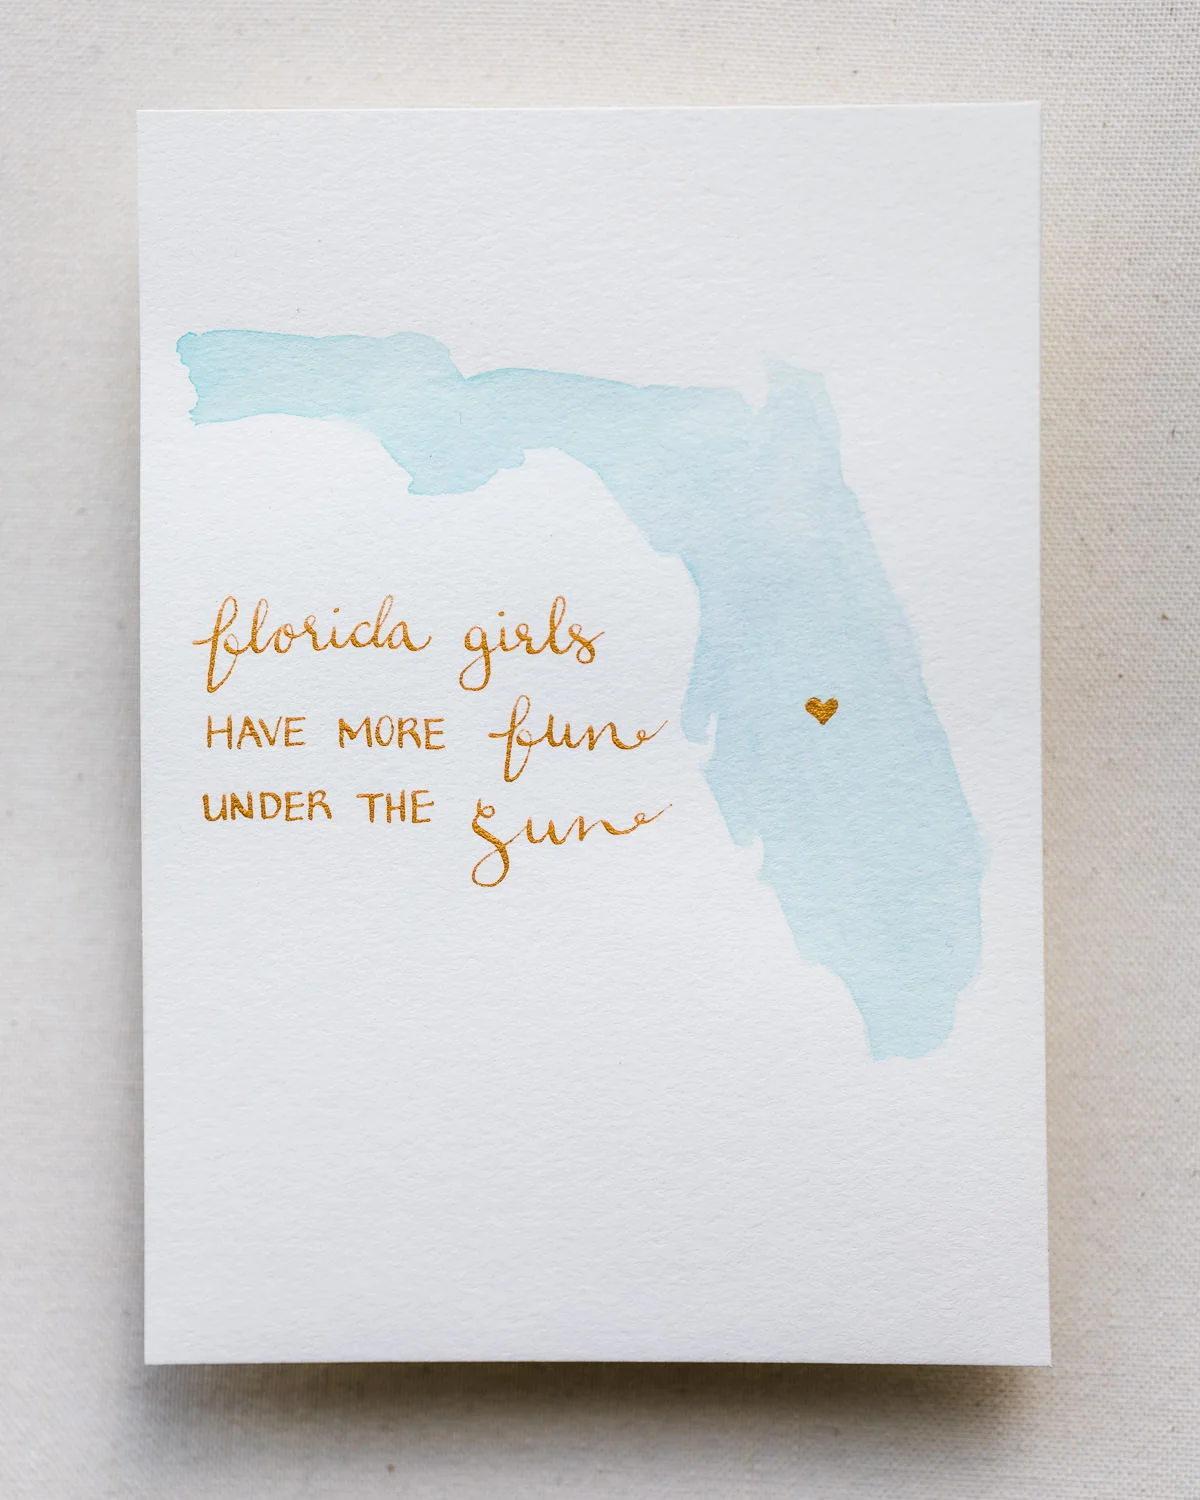 florida girls
HAVE MORE fun
UNDER THE sun